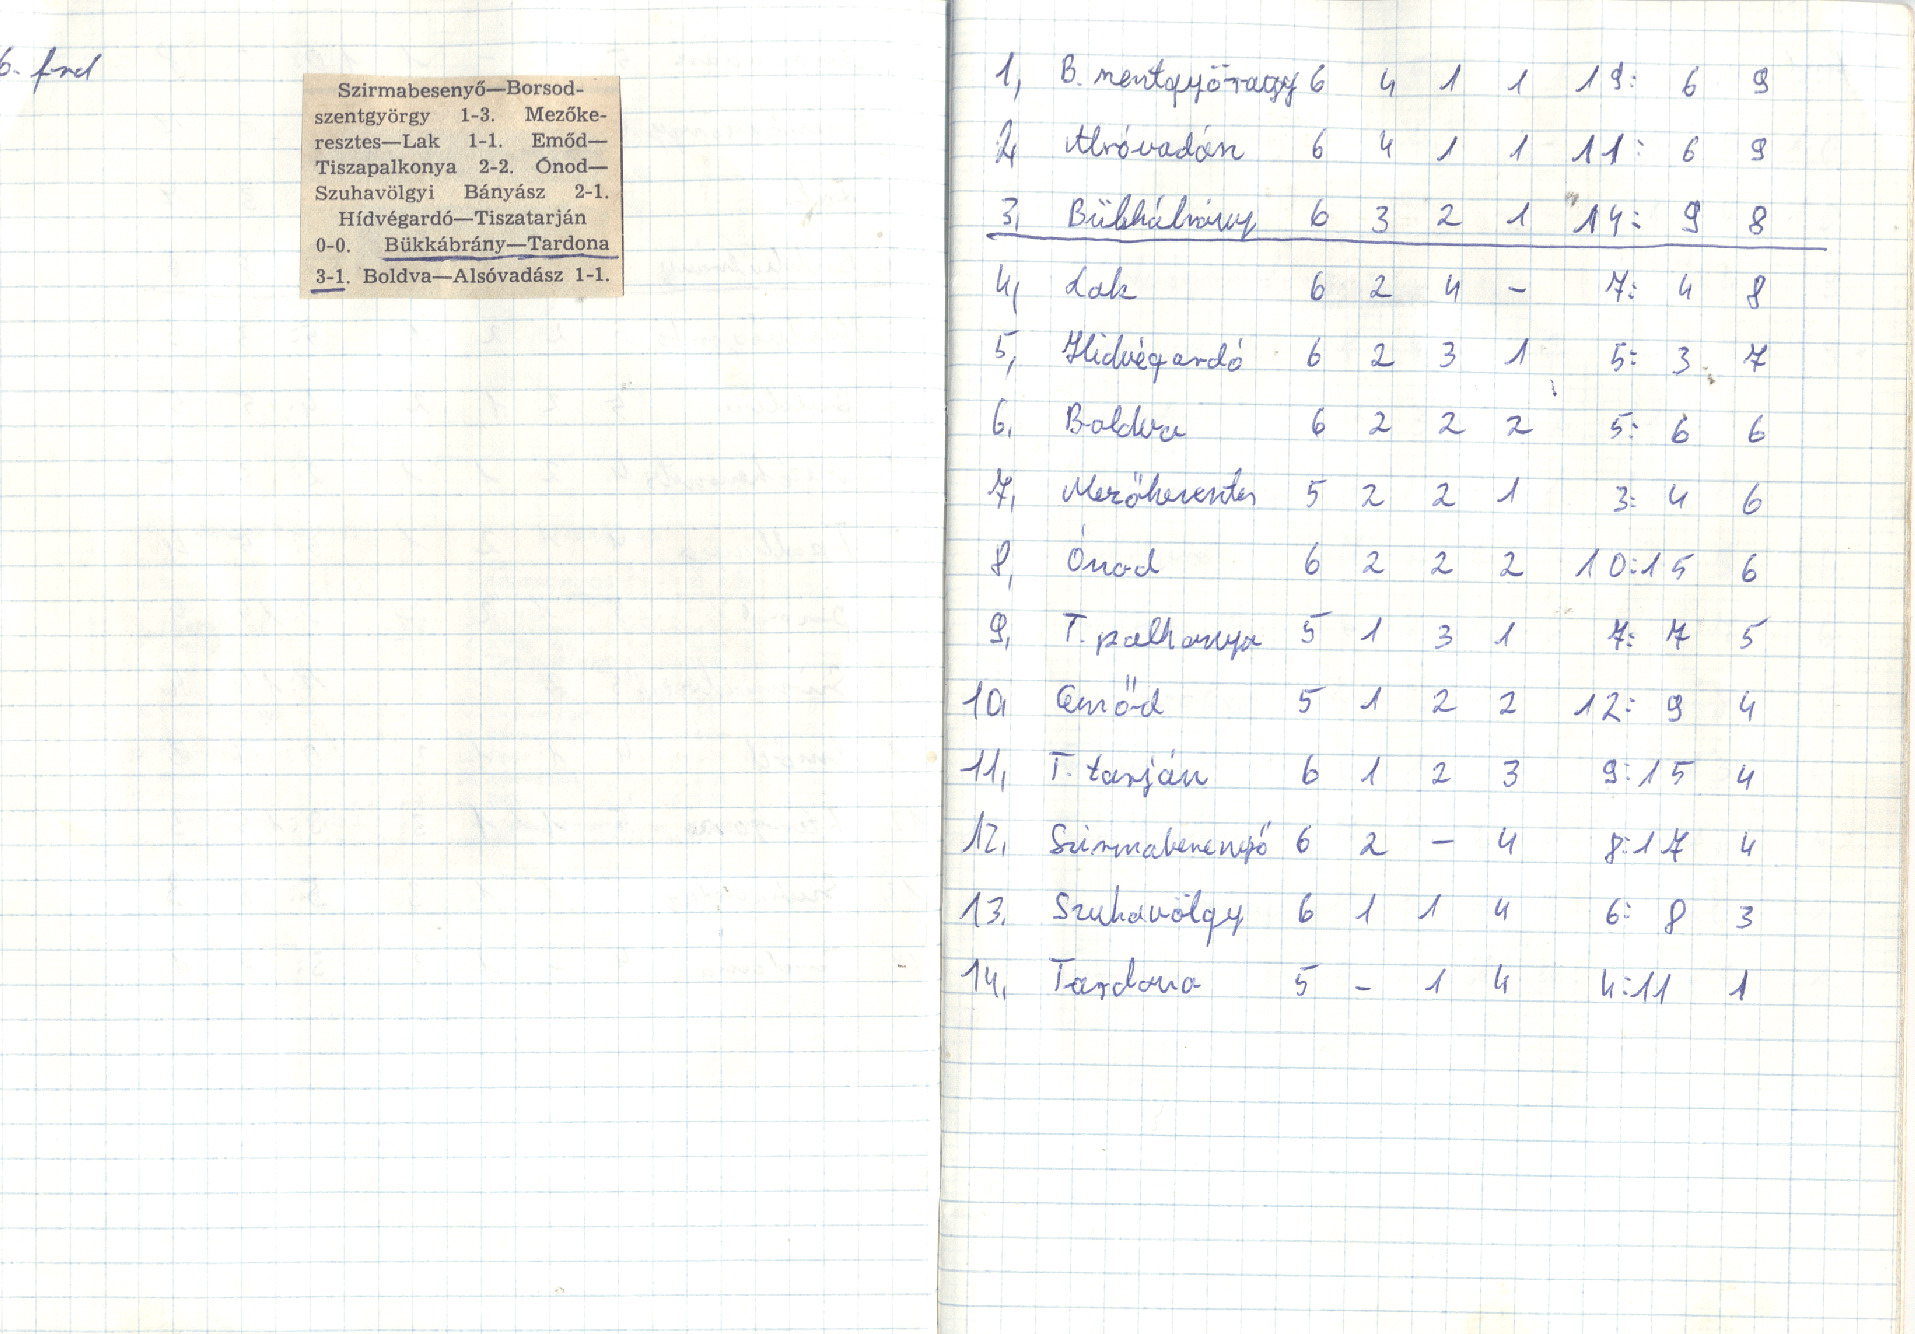 6. frd
Szirmabesenyő—Borsod-
szentgyörgy 1-3. Mezőke-
resztes—Lak 1-1. Emőd—
Tiszapalkonya 2-2. Ónod—
Szuhavölgyi Bányász 2-1.
Hídvégardó—Tiszatarján
0-0. Bükkábrány—Tardona
3-1. Boldva—Alsóvadász 1-1.
1, B. szentgyörgy 6 4 1 1 19: 6 9
2, Alsóvadász 6 4 1 1 11: 6 9
3, Bükkábrány 6 3 2 1 14: 9 8
4, Lak 6 2 4 – 7: 4 8
5, Hidvégardó 6 2 3 1 5: 3 7
6, Boldva 6 2 2 2 5: 6 6
7, Mezőkeresztes 5 2 2 1 3: 4 6
8, Ónod 6 2 2 2 10:15 6
9, T. palkonya 5 1 3 1 7: 7 5
10, Emőd 5 1 2 2 12: 9 4
11, T. tarján 6 1 2 3 9:15 4
12, Szirmabesenyő 6 2 – 4 8:17 4
13. Szuhavölgy 6 1 1 4 6: 8 3
14, Tardona 5 – 1 4 4:11 1